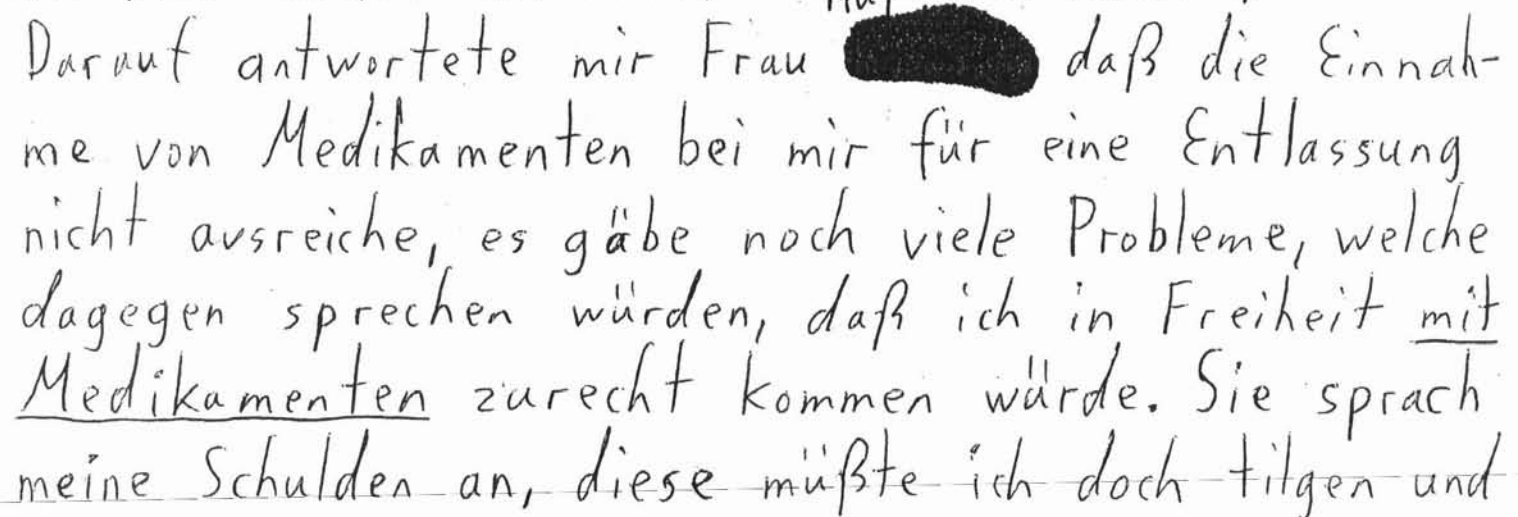 Darauf antwortete mir Frau daß die Einnah-
me von Medikamenten bei mir für eine Entlassung
nicht ausreiche, es gäbe noch viele Probleme, welche
dagegen sprechen würden, daß ich in Freiheit mit
Medikamenten zurecht kommen würde. Sie sprach
meine Schulden an, diese müßte ich doch tilgen und